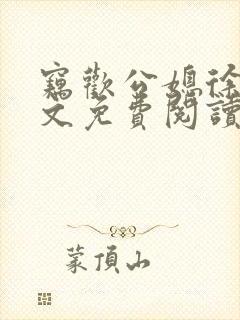 竊歡公媳徐
文免費閱讀
蒙頂山